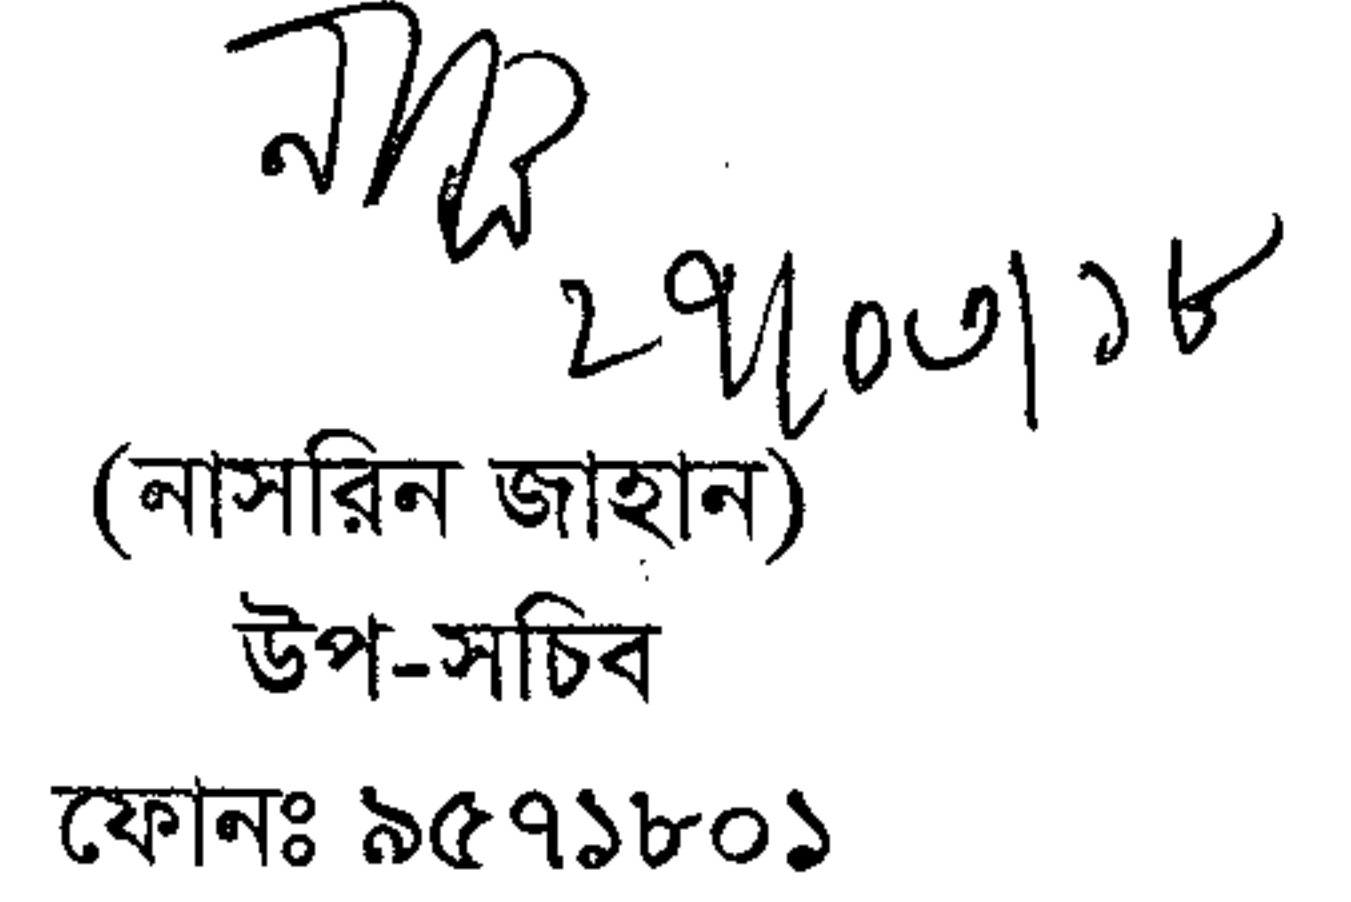 ২৭/০৩/১৮
(নাসরিন জাহান)
উপ-সচিব
ফোনঃ ৯৫৭১৮০১